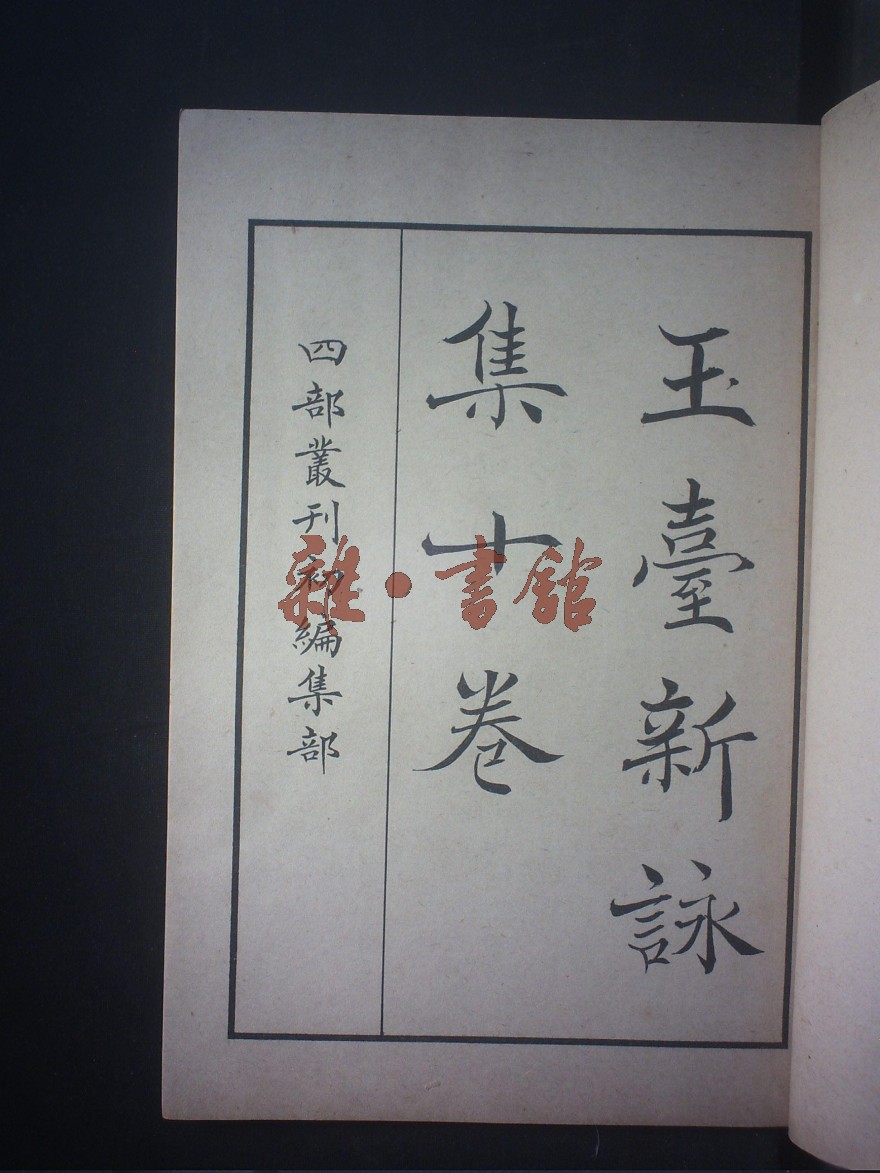 玉臺新詠
集十卷
四部叢刊初編集部
雜·書館